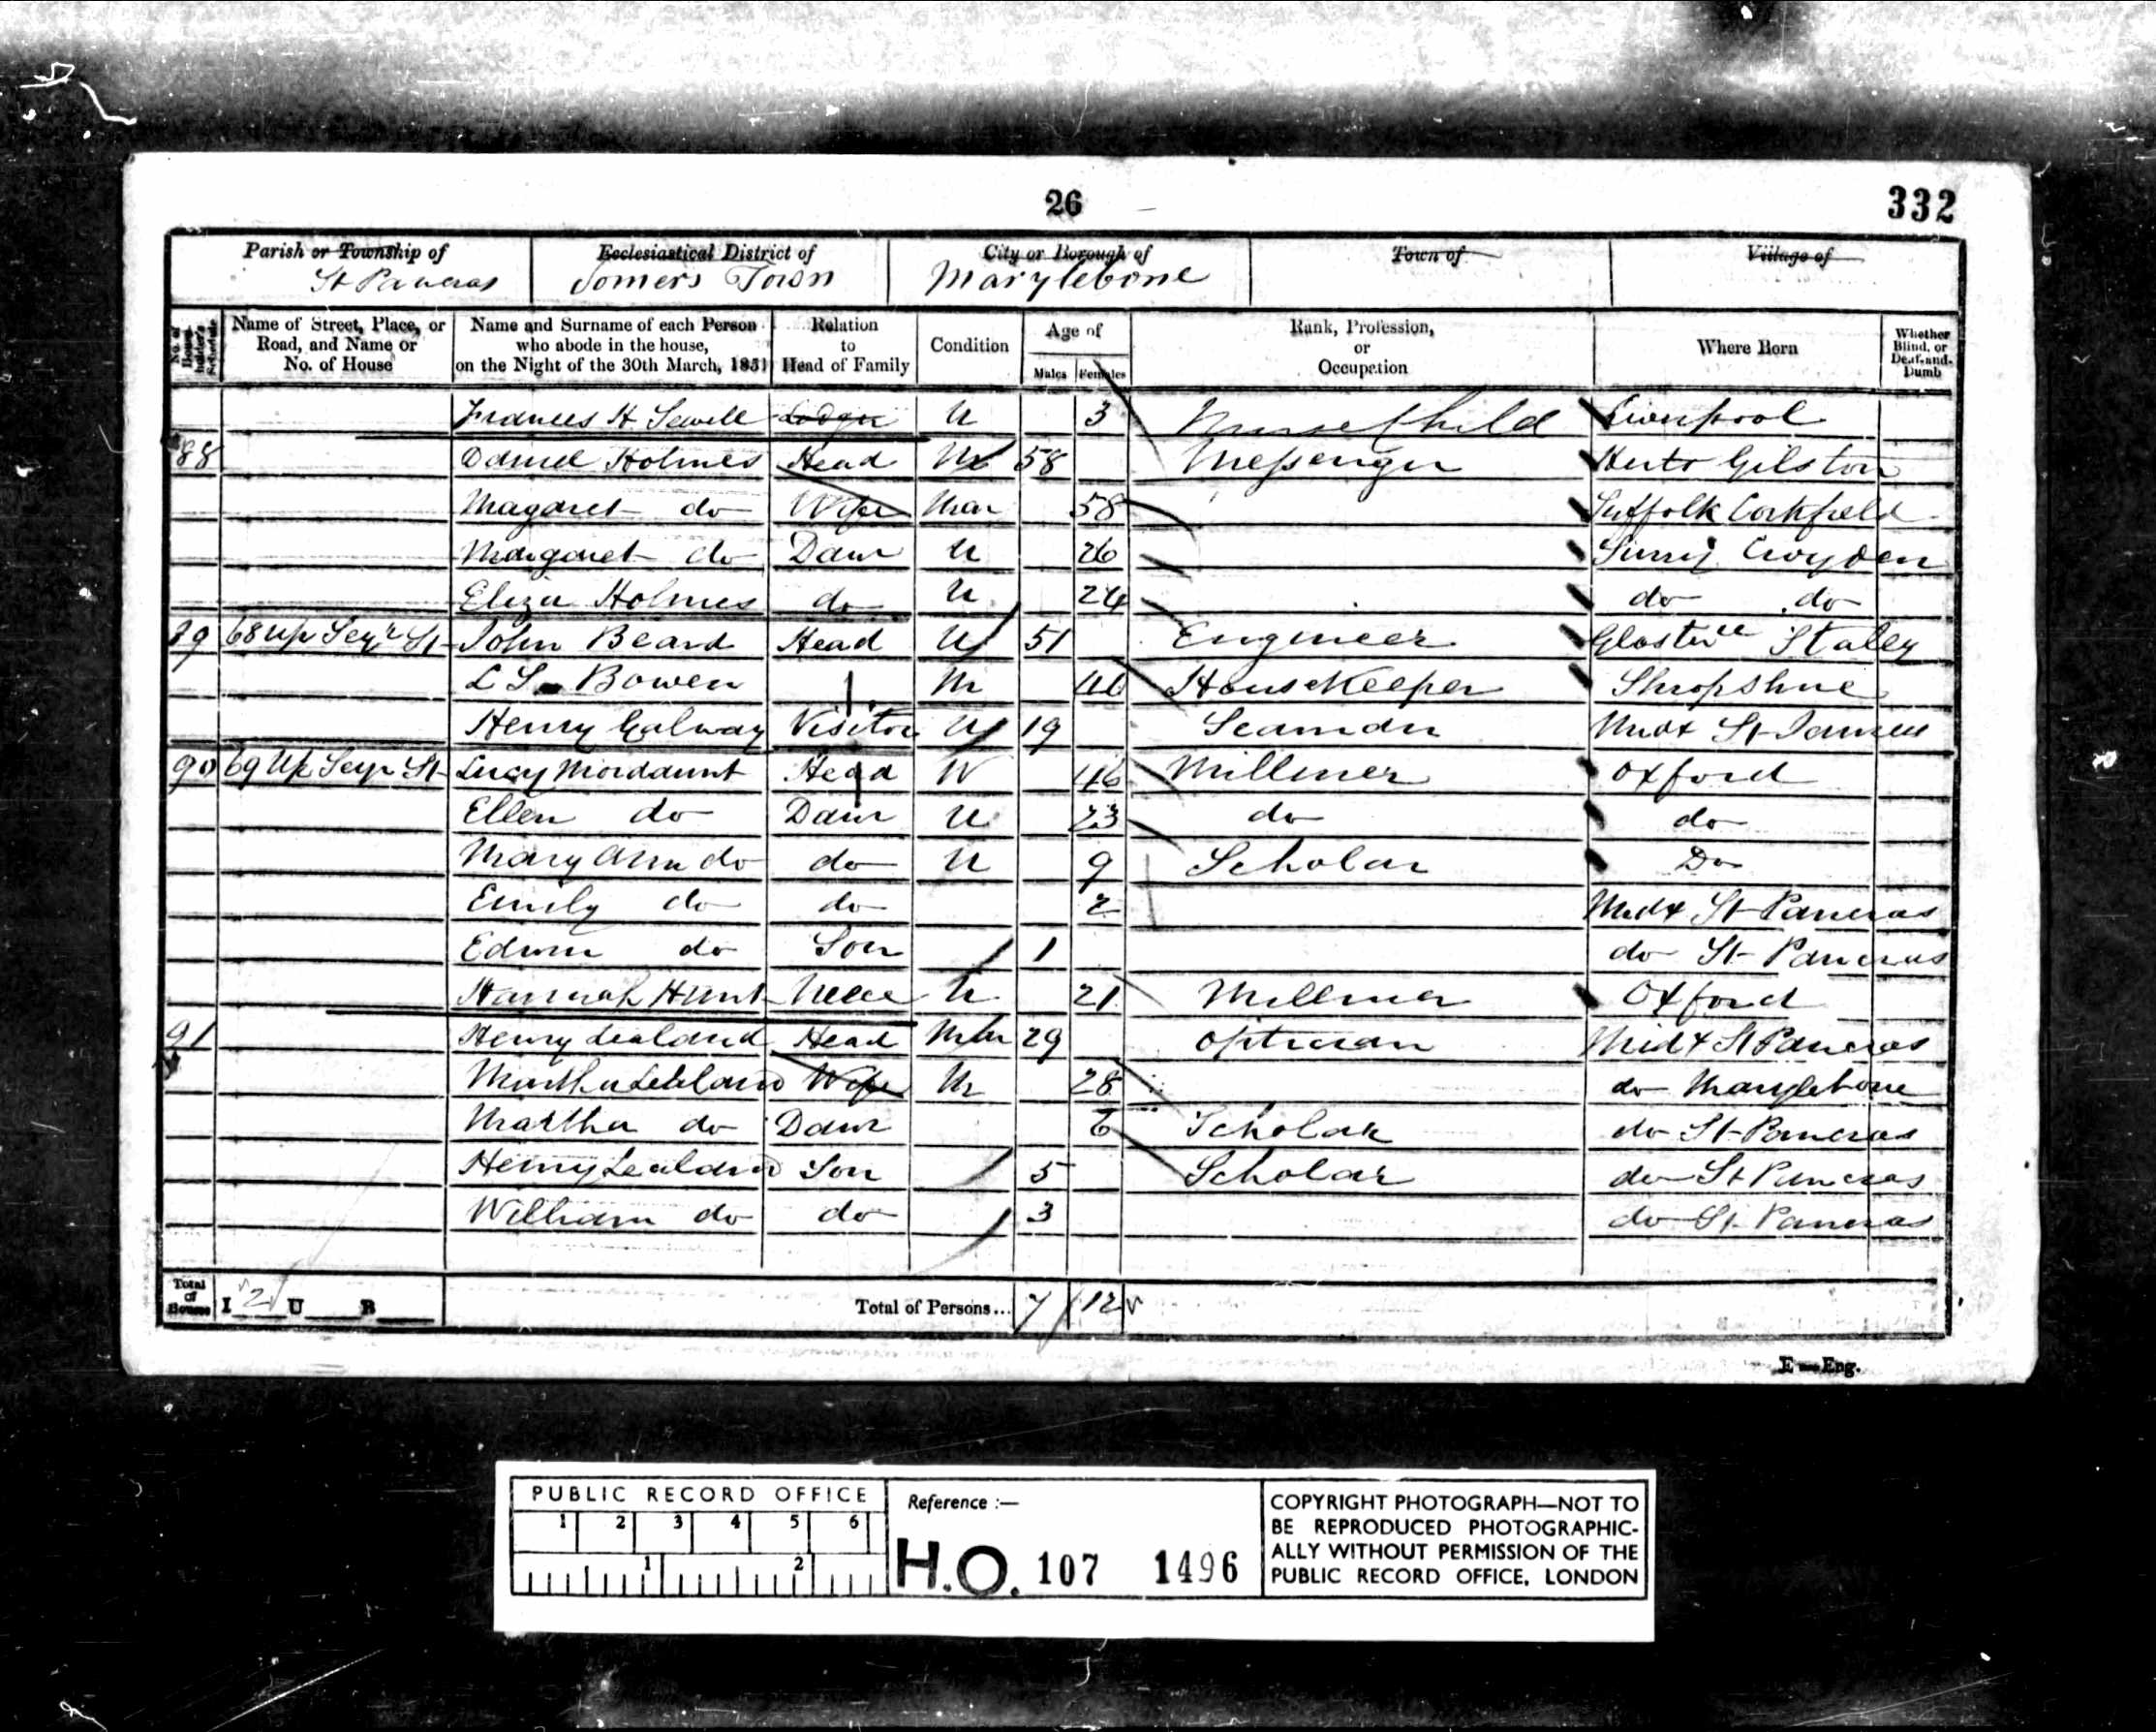 26
332
Parish or Township of
St Pancras
Ecclesiastical District of
Somers Town
City or Borough of
Marylebone
Town of
Village of
No. of House-holder's Schedule
Name of Street, Place, or Road, and Name or No. of House
Name and Surname of each Person who abode in the house, on the Night of the 30th March, 1851
Relation to Head of Family
Condition
Age of
Males
Females
Rank, Profession, or Occupation
Where Born
Whether Blind, or Deaf-and-Dumb
Frances H Sewell Lodger U 3 Nurse Child Liverpool
88 Daniel Holmes Head M 58 Messenger Herts Gilston
Magaret do Wife Mar 58 Suffolk Cockfield
Margaret do Daur U 26 Surry Croyden
Eliza Holmes do U 24 do do
89 68 Up Seyr St John Beard Head U 51 Engineer Staley
L S Bowen M 46 HouseKeeper Shropshire
Henry Galway Visitor U 19 Seaman Midx St James
90 69 Up Seyr St Lucy Mordaunt Head W 46 Milliner Oxford
Ellen do Daur U 23 do do
Mary Ann do do U 9 Scholar Do
Emily do do 2 Midx St Pancras
Edwin do Son 1 do St Pancras
Hannah Hunt Neece U 21 Milliner Oxford
91 Henry Lealand Head Mar 29 Optician Midx St Pancras
Martha Lealand Wife M 28 do Marylebone
Martha do Daur 6 Scholar do St Pancras
Henry Lealand Son 5 Scholar do St Pancras
William do do 3 do St Pancras
Total of Houses I 2 U B Total of Persons... 7 12
E—Eng.
PUBLIC RECORD OFFICE
1 2 3 4 5 6
1 2
Reference :—
H.O. 107 1496
COPYRIGHT PHOTOGRAPH—NOT TO
BE REPRODUCED PHOTOGRAPHIC-
ALLY WITHOUT PERMISSION OF THE
PUBLIC RECORD OFFICE, LONDON